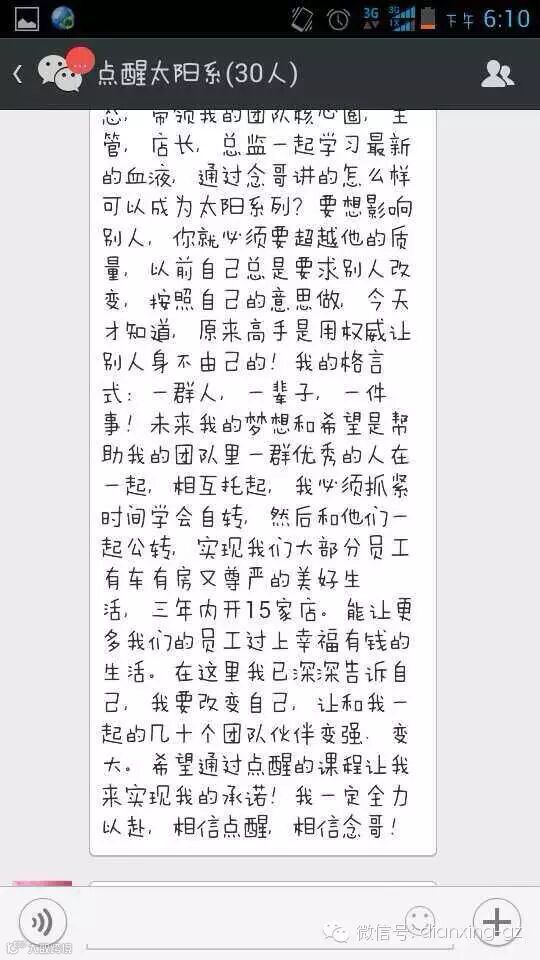 3G 3G 下午 6:10
点醒太阳系(30人)
态，带领我的团队核心圈，主
管，店长，总监一起学习最新
的血液，通过念哥讲的怎么样
可以成为太阳系列？要想影响
别人，你就必须要超越他的质
量，以前自己总是要求别人改
变，按照自己的意思做，今天
才知道，原来高手是用权威让
别人身不由己的！我的格言
式：一群人，一辈子，一件
事！未来我的梦想和希望是帮
助我的团队里一群优秀的人在
一起，相互托起，我必须抓紧
时间学会自转，然后和他们一
起公转，实现我们大部分员工
有车有房又尊严的美好生
活，三年内开15家店。能让更
多我们的员工过上幸福有钱的
生活。在这里我已深深告诉自
己，我要改变自己，让和我一
起的几十个团队伙伴变强．变
大。希望通过点醒的课程让我
来实现我的承诺！我一定全力
以赴，相信点醒，相信念哥！
微信号: dianxing-gz
大数跨境